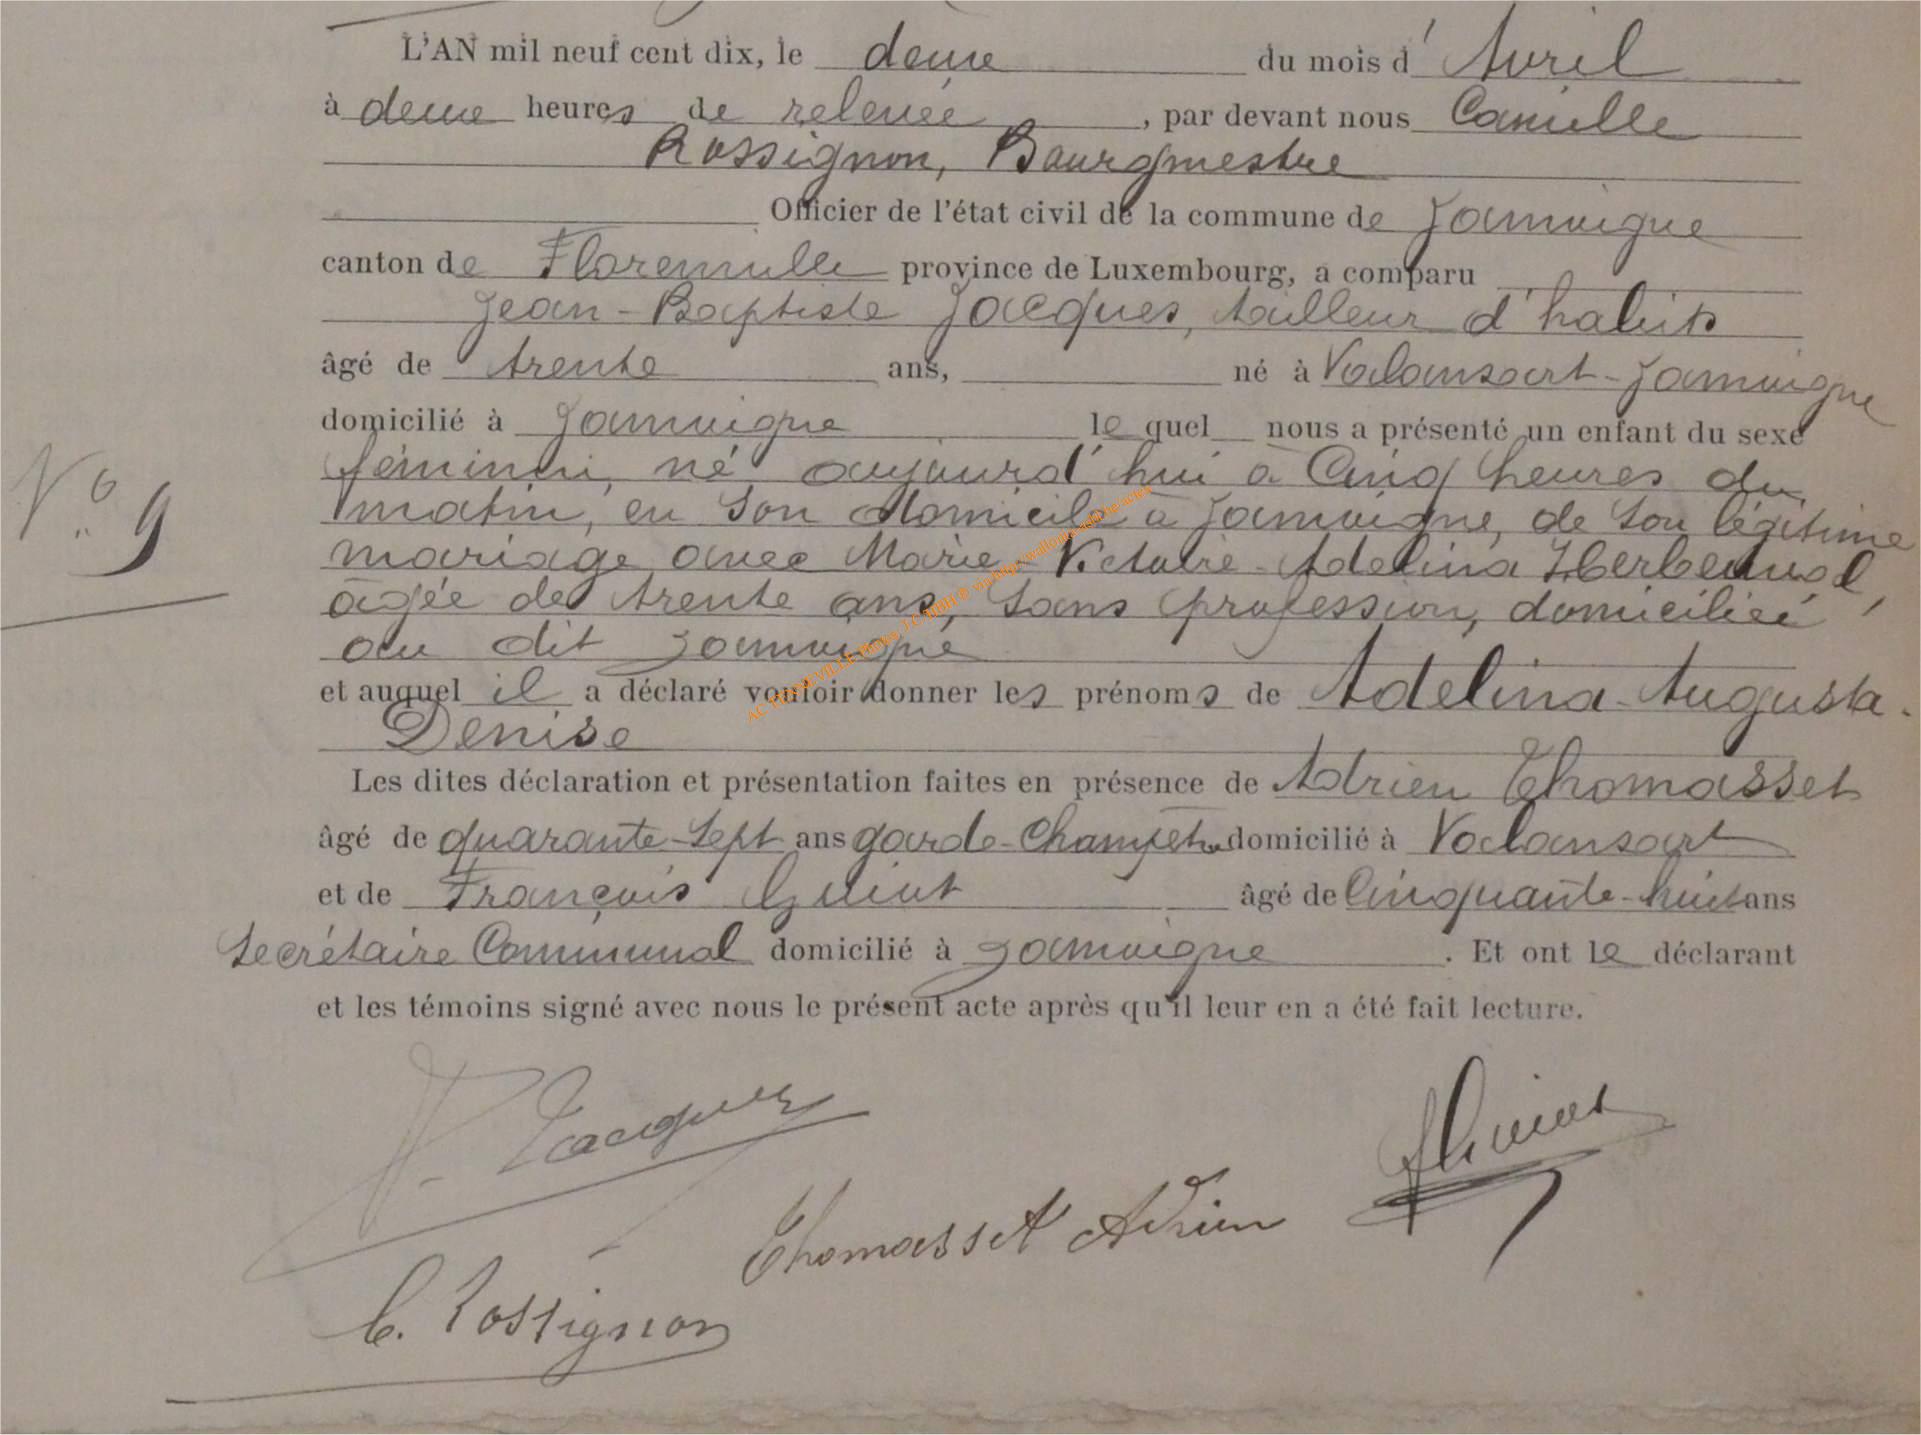 L'AN mil neuf cent dix, le deux du mois d'Avril
à deux heures de relevée, par devant nous Camille
Rossignon, Bourgmestre
Officier de l'état civil de la commune de Jamoigne
canton de Florenville province de Luxembourg, a comparu
Jean-Baptiste Jacques, tailleur d'habits
âgé de trente ans, né à Valansart-Jamoigne
domicilié à Jamoigne lequel nous a présenté un enfant du sexe
féminin, né aujourd'hui à Cinq heures du
N° 9
matin, en son domicile à Jamoigne, de son légitime
mariage avec Marie-Victoire-Adelina
âgée de trente ans, sans profession, domiciliée
au dit Jamoigne
et auquel il a déclaré vouloir donner les prénoms de Adelina-Augusta-
Denise
Les dites déclaration et présentation faites en présence de Adrien Thomasset
âgé de quarante-sept ans garde-Champêtre domicilié à Valansart
et de François Guiot âgé de Cinquante-huit ans
Secrétaire Communal domicilié à Jamoigne. Et ont le déclarant
et les témoins signé avec nous le présent acte après qu'il leur en a été fait lecture.
J. Jacques
Thomasset Adrien
C. Rossignon